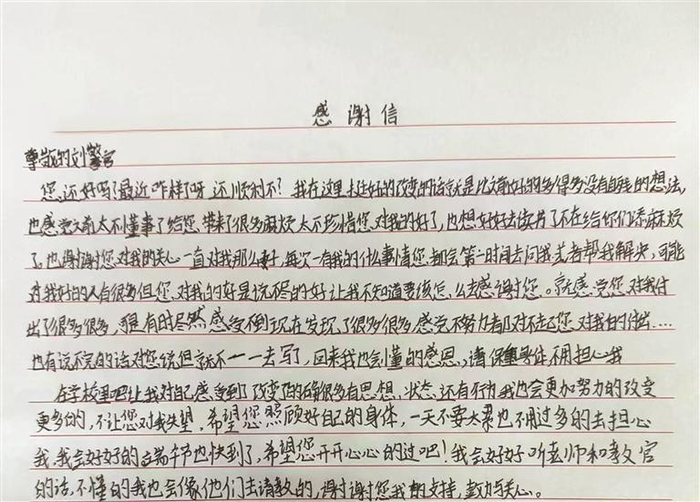 感谢信
尊敬的刘警官
您还好吗?最近咋样了呀 还顺利不?我在这里挺好的改变的话就是比之前好的多得多没有自残的想法,
也感觉之前太不懂事了给您带来了很多麻烦太不珍惜您对我的好了,也想好好去读书了不在给你们添麻烦
了,也谢谢您对我的关心一直对我那么好,每次一有我的什么事情您都会第一时间去问我或者帮我解决,可能
对我好的人有很多但您对我的好是说不尽的好让我不知道要该怎么去感谢您。就感觉您对我付
出了很多很多,虽有时尽然感受不到现在发现了很多很多,感觉不努力都对不起您对我的付出....
也有说不完的话对您说但就不一一去写了,回来我也会懂的感恩,请保重身体不用担心我
在学校里吧让我对自己感受到了改变的确很多有思想、状态、还有行为我也会更加努力的改变
更多的,不让您对我失望,希望您照顾好自己的身体,一天不要太累也不用过多的去担心
我,我会好好的端午节也快到了,希望您开开心心的过吧!我会好好听老师和教官
的话,不懂的我也会像他们去请教的,谢谢您我的支持,鼓励与关心。